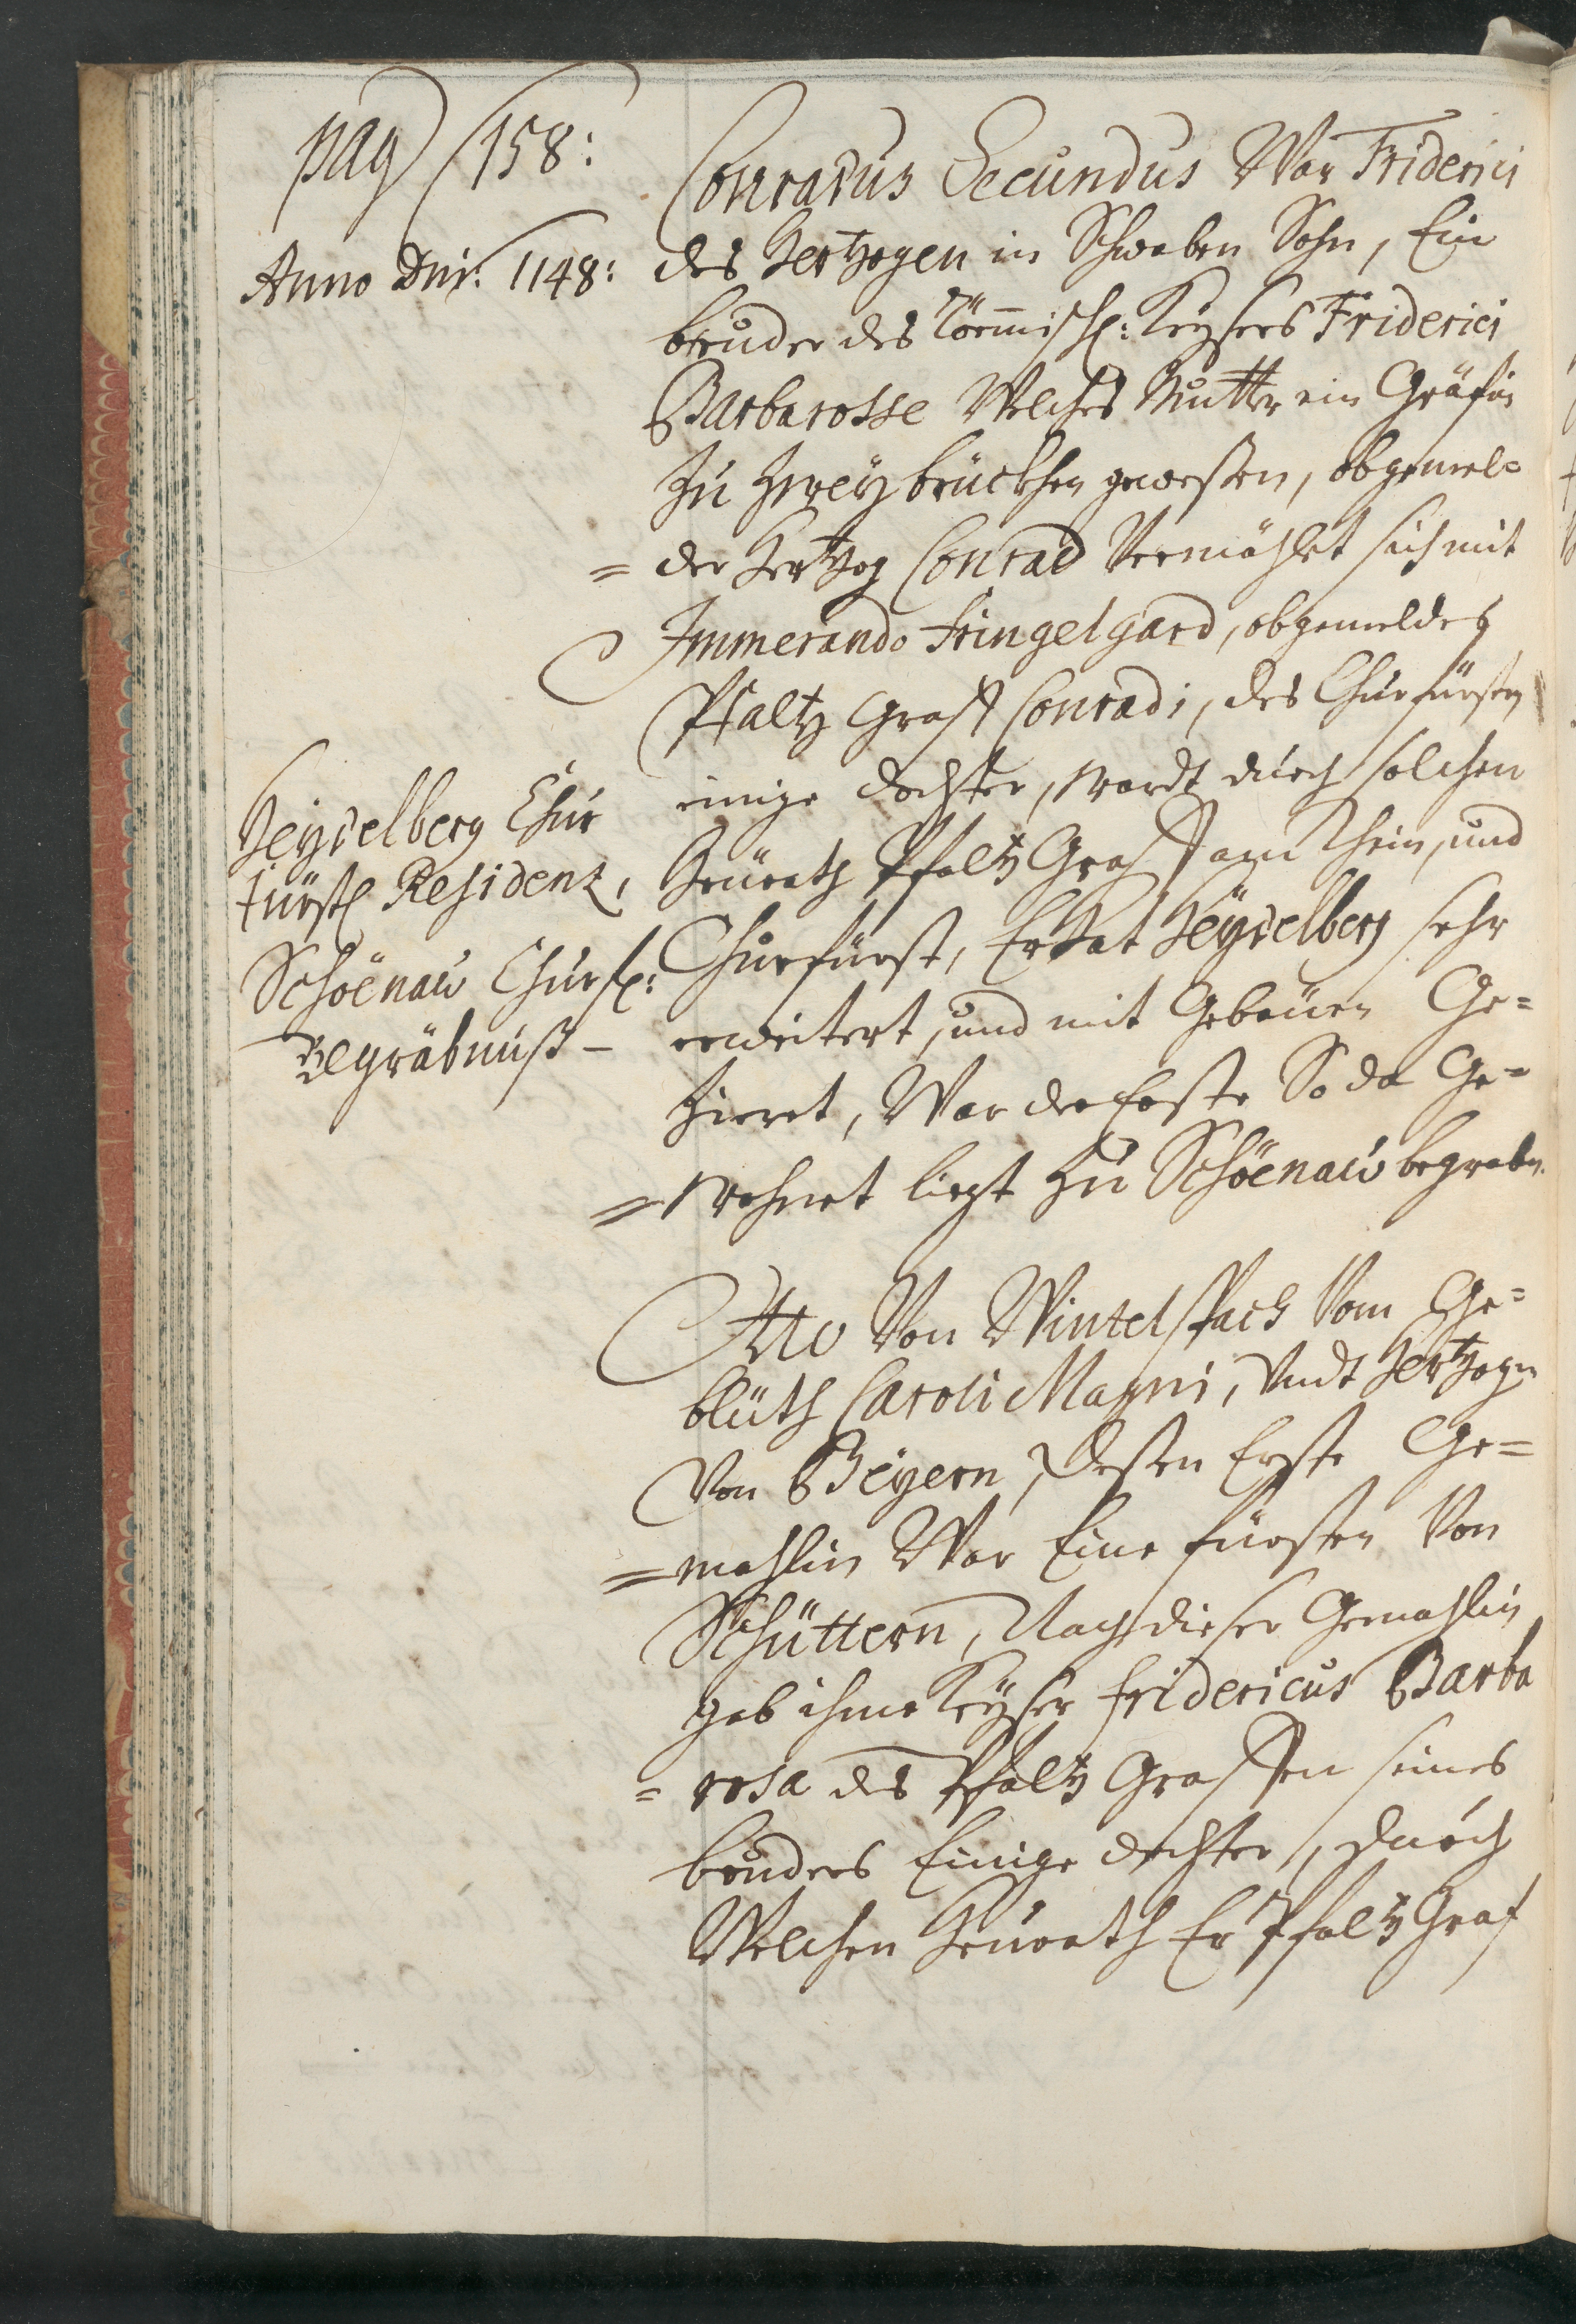 pag 158:
Anno Dni: 1148:
Conradus Secundus War Friderici
des Hertzogen in Schwaben Sohn, Ein
bruder des Römmisch: Keysers Friderici
Barbarosse Welches Mutter ein Gräfin
Zu Zweybrückhen gewessen, obgemel=
= der Hertzog Conrad Vermählet sich mit
Immerando Fringelgard, obgemeldes
Pfaltz Graff Conradi, des Churfürsten
einige dochter, wardt durch solchen
Heurath Pfaltz Graff am Rhein, und
Churfürst, Er hat Heydelberg sehr
erweitert, und mit Gebäuen Ge=
Zieret, War der Erste So da Ge=
= wohnet liegt Zu Schöenau begraben.
Heydelberg Chur
fürstl Residenz,
Schöenau Churfl:
Begräbnuß –
Otto Von Wintelspach Vom Ge=
blüth Caroli Magni, Undt Hertzogen
Von Beyern, dessen Erste Ge=
= mahlin War Eine fürsten Von
Schüttern, Nach dieser Gemahlin
gab ihme Keyser fridericus Barba
= rosa des Pfaltz Graffen seines
bruders Einige dochter, durch
Welchen Heurath Er Pfaltz Graf